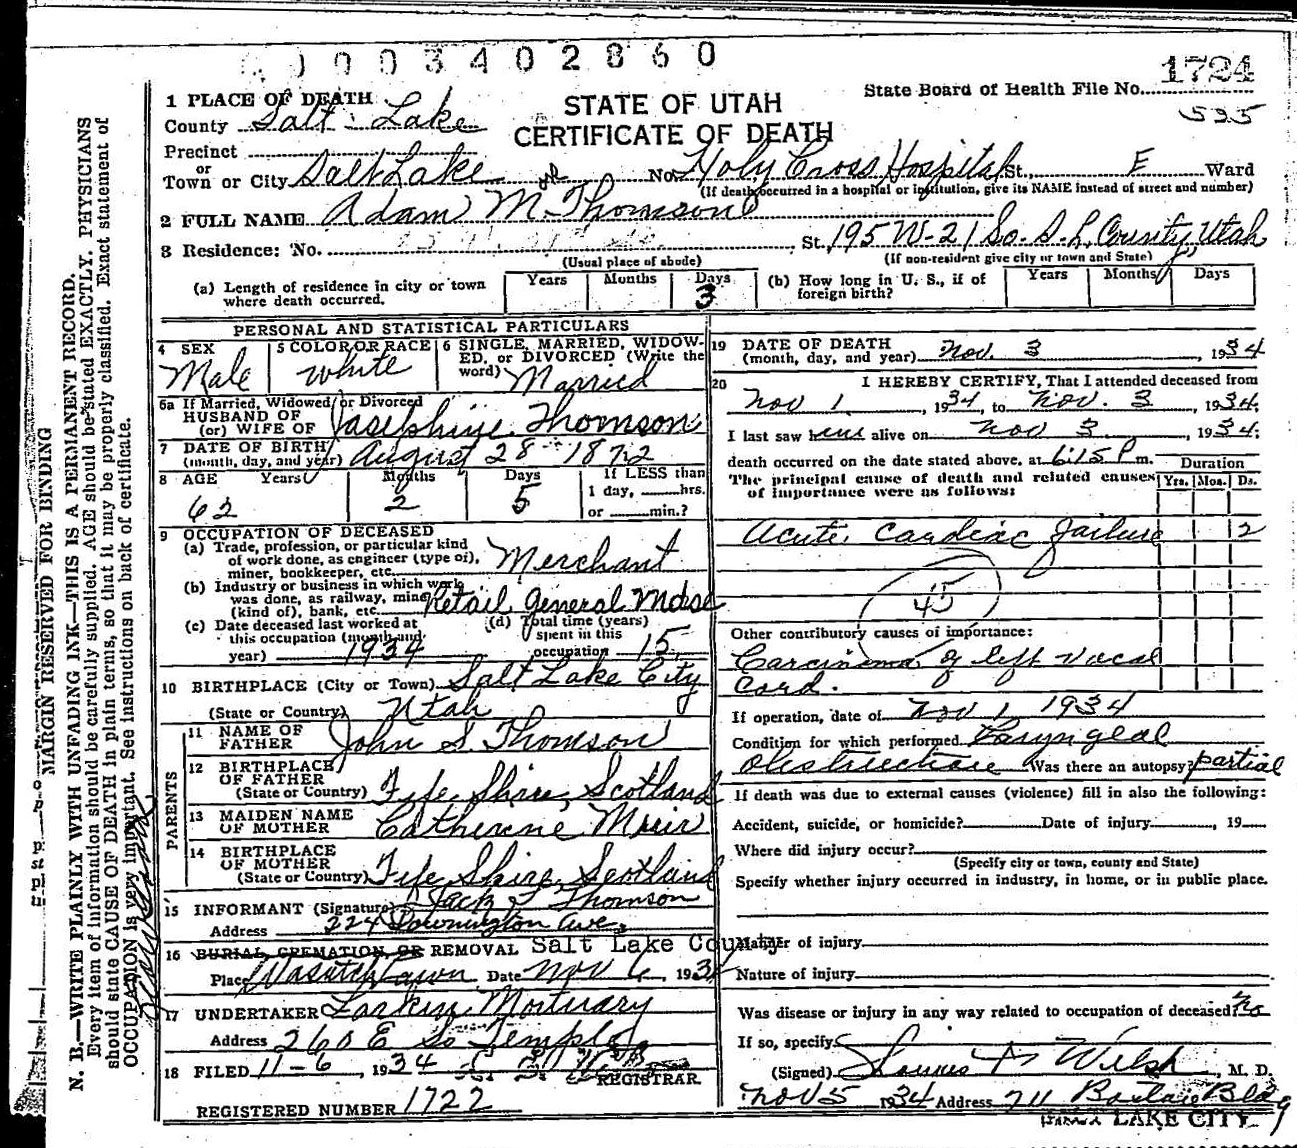 0003402860
1724
State Board of Health File No.
535
STATE OF UTAH
CERTIFICATE OF DEATH
1 PLACE OF DEATH
County Salt Lake
Precinct
or
Town or City Salt Lake No. Holy Cross Hospital St., E Ward
(If death occurred in a hospital or institution, give its NAME instead of street and number)
2 FULL NAME Adam M Thomson
3 Residence: No. St. 195 W-21 So. S.L. County, Utah
(Usual place of abode) (If non-resident give city or town and State)
(a) Length of residence in city or town where death occurred. Years Months Days 3
(b) How long in U. S., if of foreign birth? Years Months Days
PERSONAL AND STATISTICAL PARTICULARS
4 SEX Male
5 COLOR OR RACE White
6 SINGLE, MARRIED, WIDOWED, or DIVORCED (Write the word) Married
6a If Married, Widowed, or Divorced
HUSBAND OF
(or) WIFE OF Josephine Thomson
7 DATE OF BIRTH
(month, day, and year) August 28 1872
8 AGE Years 62 Months 2 Days 5 If LESS than 1 day, hrs. or min.?
9 OCCUPATION OF DECEASED
(a) Trade, profession, or particular kind
of work done, as engineer (type of),
miner, bookkeeper, etc. Merchant
(b) Industry or business in which work
was done, as railway, mine
(kind of), bank, etc. Retail General Mdse
(c) Date deceased last worked at
this occupation (month and
year) 1934
(d) Total time (years)
spent in this
occupation 15
10 BIRTHPLACE (City or Town) Salt Lake City
(State or Country) Utah
PARENTS
11 NAME OF
FATHER John S. Thomson
12 BIRTHPLACE
OF FATHER
(State or Country) Fife Shire, Scotland
13 MAIDEN NAME
OF MOTHER Catherine Muir
14 BIRTHPLACE
OF MOTHER
(State or Country) Fife Shire, Scotland
15 INFORMANT (Signature) Jack S Thomson
Address 224 Downington Ave.
16 BURIAL, CREMATION, OR REMOVAL Salt Lake County
Place Wasatch Lawn Date Nov 6, 1934
17 UNDERTAKER Larkin Mortuary
Address 260 E So Temple
18 FILED 11-6, 1934
REGISTRAR
REGISTERED NUMBER 1722
19 DATE OF DEATH
(month, day, and year) Nov. 3, 1934
20 I HEREBY CERTIFY, That I attended deceased from
Nov 1, 1934, to Nov. 3, 1934.
I last saw him alive on Nov 3, 1934;
death occurred on the date stated above, at 6:15 P m.
The principal cause of death and related causes
of importance were as follows:
Duration
Yrs. Mos. Ds.
Acute Cardiac Failure 2
45
Other contributory causes of importance:
Carcinoma of left vocal
cord.
If operation, date of Nov 1 1934
Condition for which performed Laryngeal
Obstruction Was there an autopsy? partial
If death was due to external causes (violence) fill in also the following:
Accident, suicide, or homicide? Date of injury , 19
Where did injury occur?
(Specify city or town, county and State)
Specify whether injury occurred in industry, in home, or in public place.
Manner of injury
Nature of injury
Was disease or injury in any way related to occupation of deceased? No
If so, specify
(Signed) M. D.
Nov 5 1934 Address 711 Bldg
SALT LAKE CITY
MARGIN RESERVED FOR BINDING
N. B.—WRITE PLAINLY WITH UNFADING INK—THIS IS A PERMANENT RECORD.
Every item of information should be carefully supplied. AGE should be stated EXACTLY. PHYSICIANS
should state CAUSE OF DEATH in plain terms, so that it may be properly classified. Exact statement of
OCCUPATION is very important. See instructions on back of certificate.